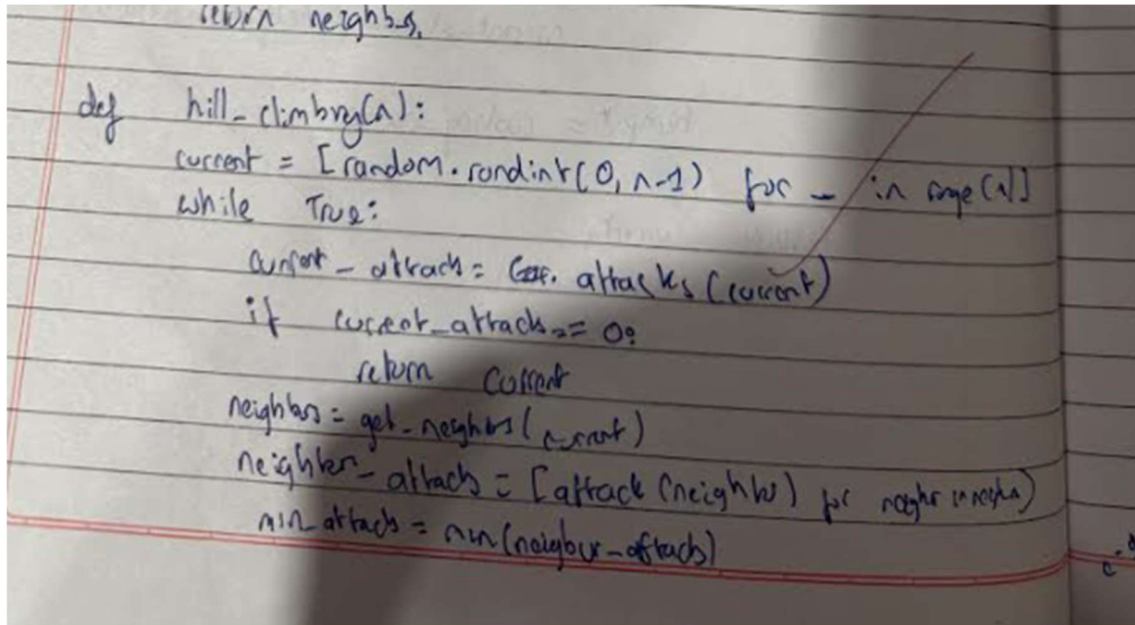 return neighbs.
def hill_climbing(n):
current = [random.randint(0, n-1) for _ in range(n)]
while True:
current_attacks = attacks(current)
if current_attacks == 0:
return current
neighbors = get_neighbors(current)
neighbor_attacks = [attack(neighbor) for neighbor in neighbors]
min_attacks = min(neighbor_attacks)